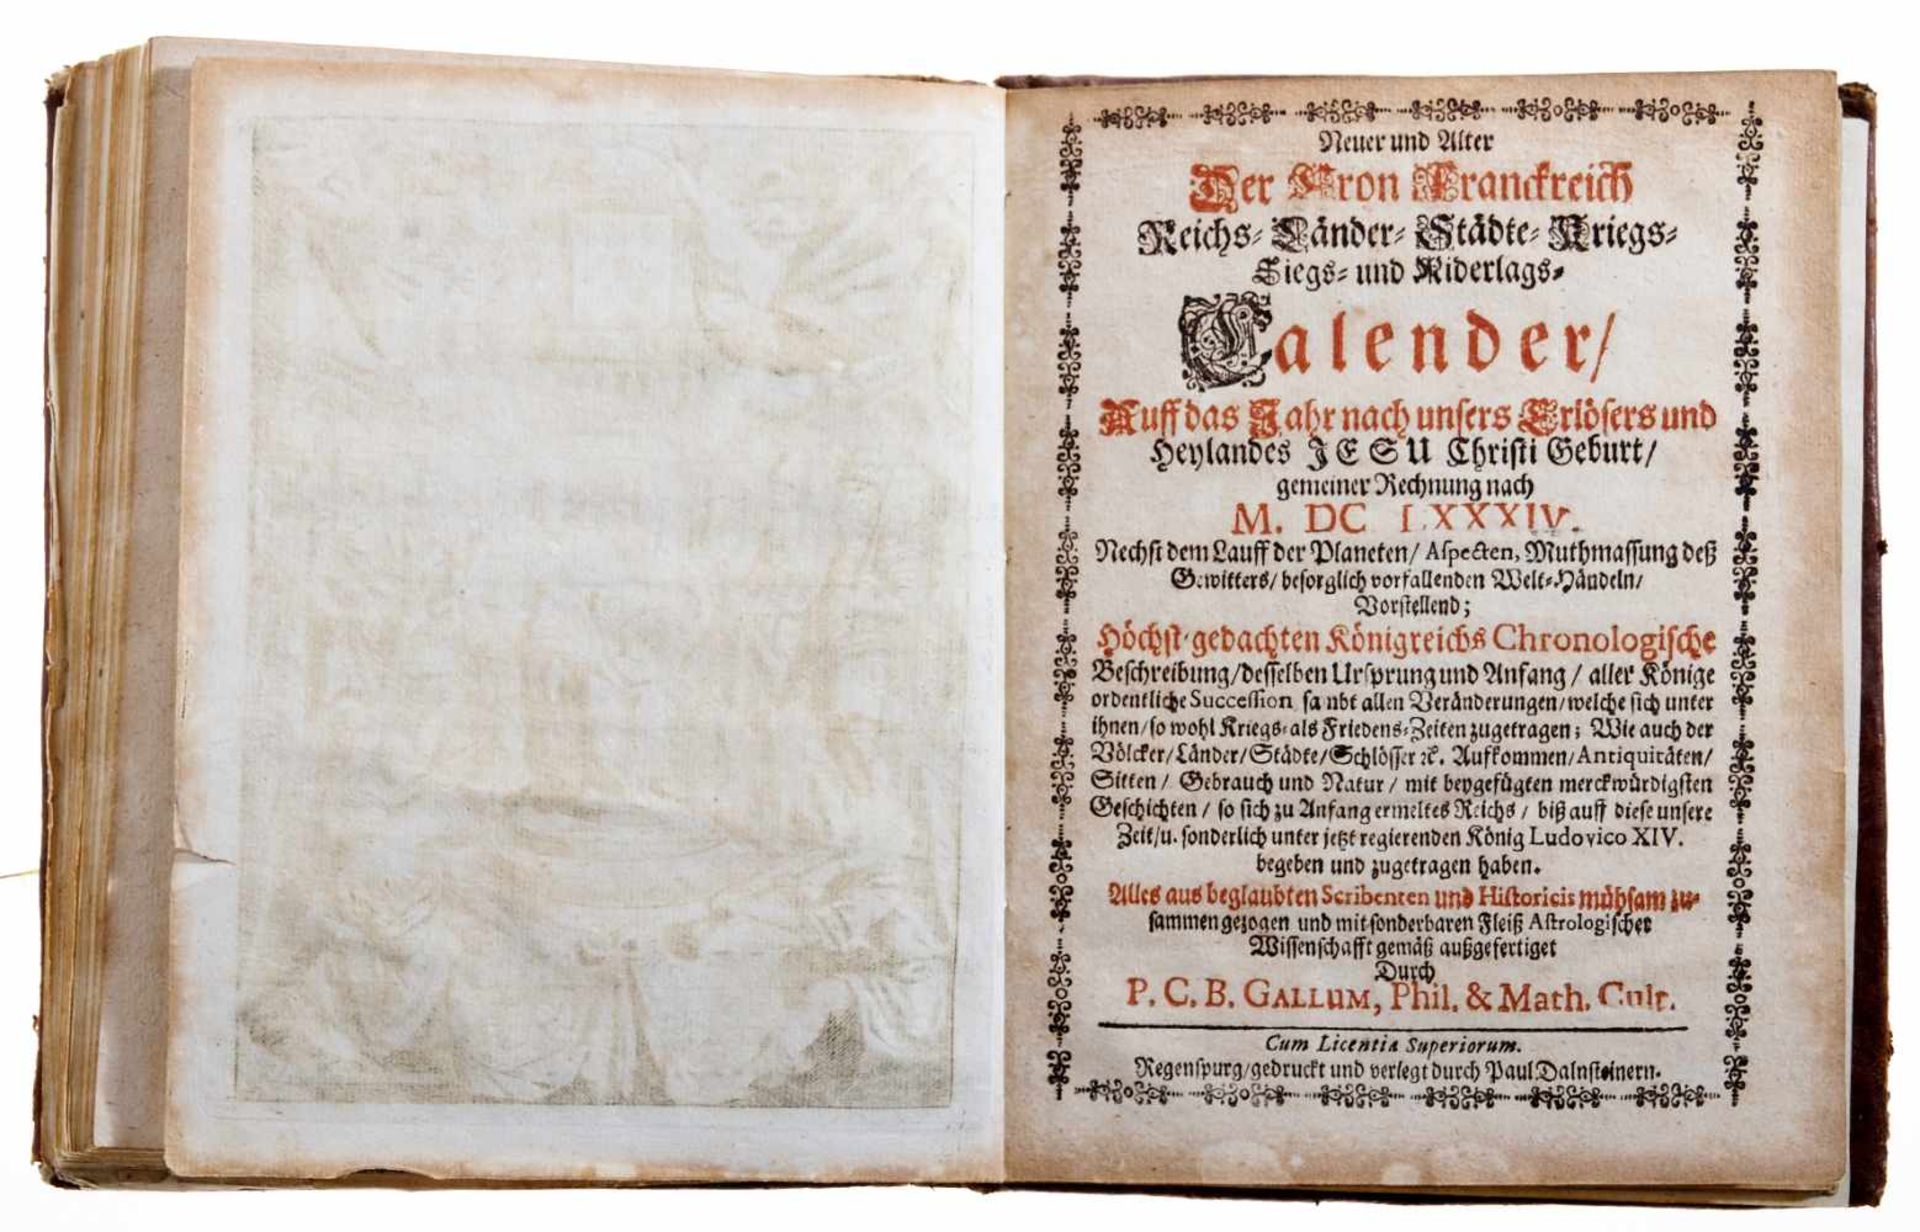 Neuer und Alter
Der Kron Franckreich
Reichs- Länder- Städte- Kriegs-
Siegs- und Niderlags-
Calender/
Auff das Jahr nach unsers Erlösers und
Heylandes JESU Christi Geburt/
gemeiner Rechnung nach
M. DC LXXXIV.
Nechst dem Lauff der Planeten/ Aspecten, Muthmassung deß
Gewitters/ besorglich vorfallenden Welt-Händeln/
Vorstellend;
Höchst-gedachten Königreichs Chronologische
Beschreibung/desselben Ursprung und Anfang/ aller Könige
ordentliche Succession sambt allen Veränderungen/welche sich unter
ihnen/so wohl Kriegs-als Friedens-Zeiten zugetragen; Wie auch der
Völcker/Länder/Städte/Schlösser ꝛc. Auffkommen/Antiquitäten/
Sitten/ Gebrauch und Natur/ mit beygefügten merckwürdigsten
Geschichten/ so sich zu Anfang ermeltes Reichs/ biß auff diese unsere
Zeit/u. sonderlich unter jetzt regierenden König Ludovico XIV.
begeben und zugetragen haben.
Alles aus beglaubten Scribenten und Historicis mühsam zu-
sammen gezogen und mit sonderbaren Fleiß Astrologischer
Wissenschafft gemäß außgefertiget
Durch
P. C. B. GALLUM, Phil. & Math. Cult.
Cum Licentia Superiorum.
Regenspurg/gedruckt und verlegt durch Paul Dalnsteinern.